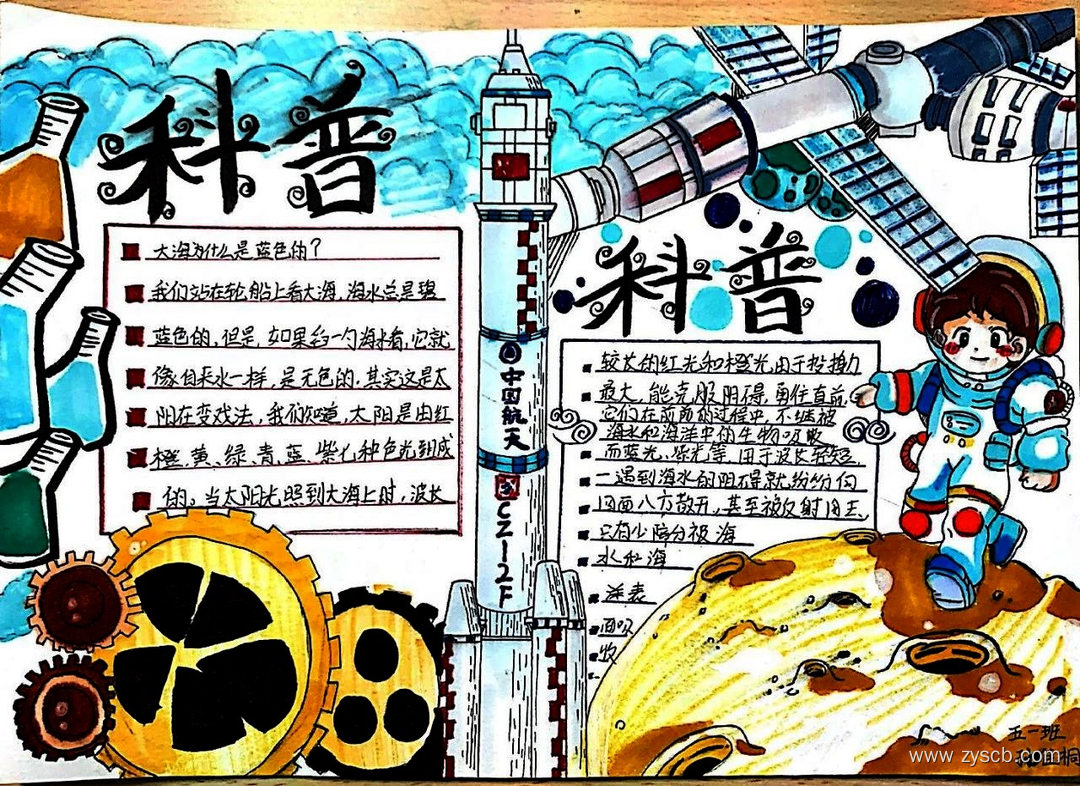 科普
大海为什么是蓝色的?
我们站在轮船上看大海,海水总是碧
蓝色的,但是,如果舀一勺海水看,它就
像自来水一样,是无色的,其实这是太
阳在变戏法,我们知道,太阳是由红
橙、黄、绿、青、蓝、紫七种色光组成
的。当太阳光照到大海上时,波长
中国航天
CZ-2F
科普
较长的红光和橙光由于
最大,能克服阻碍,勇往直前,
它们在前面的过程中,不断被
海水和海洋中的生物吸收
而蓝光、紫光等,由于波长较短,
一遇到海水的阻碍就纷纷向
四面八方散开,甚至被反射回去,
只有少部分被海
水和海
洋表
面吸
收
五一班
www.zyscb.com